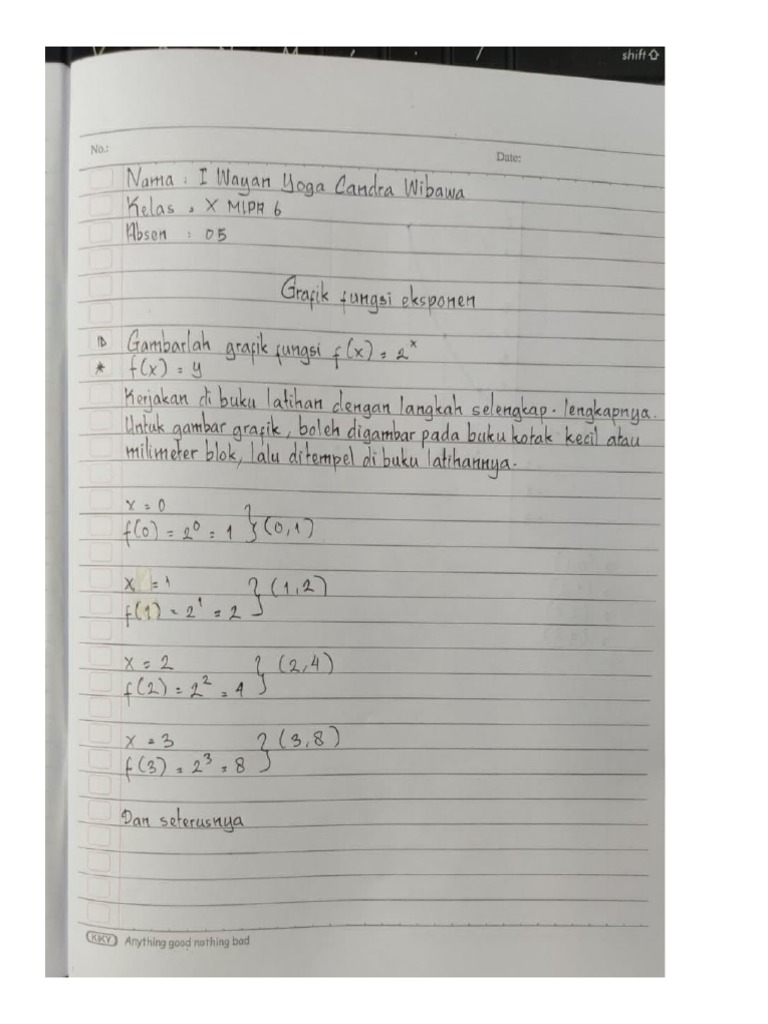 shift
No.:
Date:
Nama : I Wayan Yoga Candra Wibawa
Kelas : X MIPA 6
Absen : 05
Grafik fungsi eksponen
1) Gambarlah grafik fungsi f(x) = 2ˣ
* f(x) = y
Kerjakan di buku latihan dengan langkah selengkap-lengkapnya.
Untuk gambar grafik, boleh digambar pada buku kotak kecil atau
milimeter blok, lalu ditempel di buku latihannya.
x = 0
f(0) = 2⁰ = 1 } (0,1)
x = 1
f(1) = 2¹ = 2 } (1,2)
x = 2
f(2) = 2² = 4 } (2,4)
x = 3
f(3) = 2³ = 8 } (3,8)
Dan seterusnya
KKY Anything good nothing bad